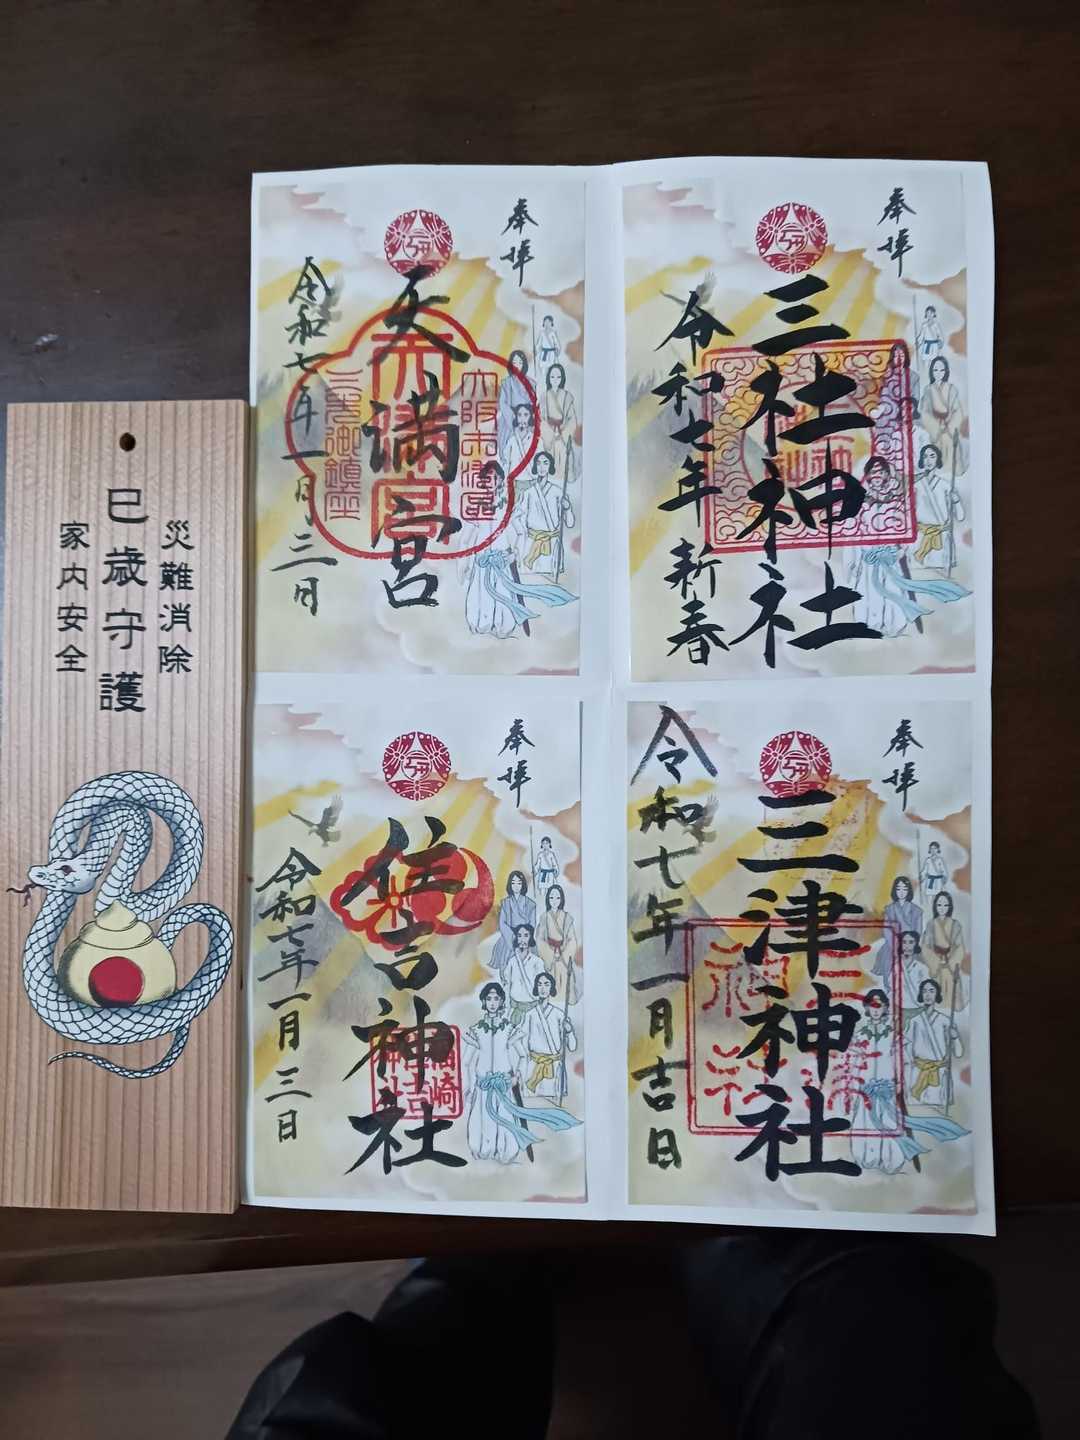 災難消除
巳歳守護
家内安全
奉拝
三社神社
令和七年 新春
奉拝
天満宮
天満宮
大阪市港区
令和七年一月三日
奉拝
三津神社
令和七年一月吉日
奉拝
住吉神社
福崎
令和七年一月三日